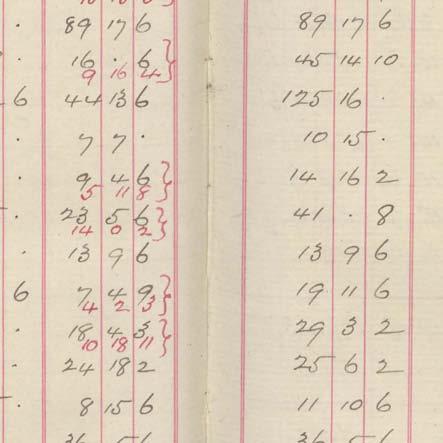 . 89 17 6 89 17 6
16 . 6 45 14 10
9 16 4
6 44 13 6 125 16 .
. 7 7 . 10 15 .
. 9 4 6 14 16 2
5 11 8
. 23 5 6 41 . 8
14 0 2
. 13 9 6 13 9 6
6 7 4 9 19 11 6
4 2 3
. 18 4 3 29 3 2
10 18 11
. 24 18 2 25 6 2
. 8 15 6 11 10 6